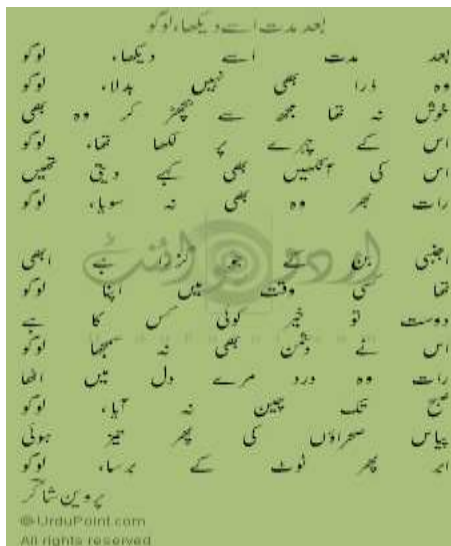 بعد مدت اسے دیکھا، لوگو
بعد مدت اسے دیکھا، لوگو
وہ ذرا بھی نہیں بدلا، لوگو
خوش نہ تھا مجھ سے بچھڑ کر وہ بھی
اس کے چہرے پر لکھا تھا، لوگو
اس کی آنکھیں بھی کہے دیتی تھیں
رات بھر وہ بھی نہ سویا، لوگو
اجنبی بن کے جو گزرا ہے ابھی
تھا کسی وقت میں اپنا لوگو
دوست تو خیر کوئی کس کا ہے
اس نے دشمن بھی نہ سمجھا لوگو
رات وہ درد مرے دل میں اٹھا
صبح تک چین نہ آیا، لوگو
پیاس صحراؤں کی پھر تیز ہوئی
ابر پھر ٹوٹ کے برسا، لوگو
پروین شاکر
©UrduPoint.com
All rights reserved
اردو پوائنٹ